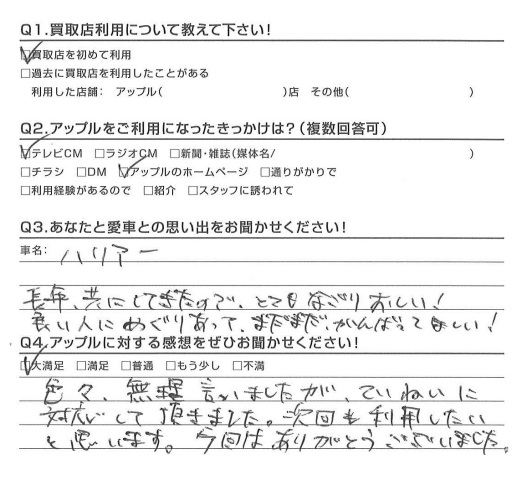 Q1.買取店利用について教えて下さい!
☑買取店を初めて利用
□過去に買取店を利用したことがある
利用した店舗: アップル( )店 その他( )
Q2.アップルをご利用になったきっかけは?(複数回答可)
☑テレビCM □ラジオCM □新聞・雑誌(媒体名/ )
□チラシ □DM ☑アップルのホームページ □通りがかりで
□利用経験があるので □紹介 □スタッフに誘われて
Q3.あなたと愛車との思い出をお聞かせください!
車名: ハリアー
長年、共にしてきたので、とてもなごりおしい!
良い人にめぐりあって、まだまだ、がんばってほしい!
Q4.アップルに対する感想をぜひお聞かせください!
☑大満足 □満足 □普通 □もう少し □不満
色々、無理言いましたが、ていねいに
対応して頂きました。次回も利用したい
と思います。今回はありがとうございました。